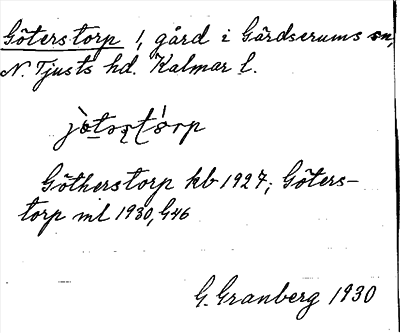 Göterstorp 1, gård i Gårdserums sn,
N. Tjusts hd. Kalmar l.
Götherstorp kb 1927; Göters-
torp ml 1930, G46
G. Granberg 1930